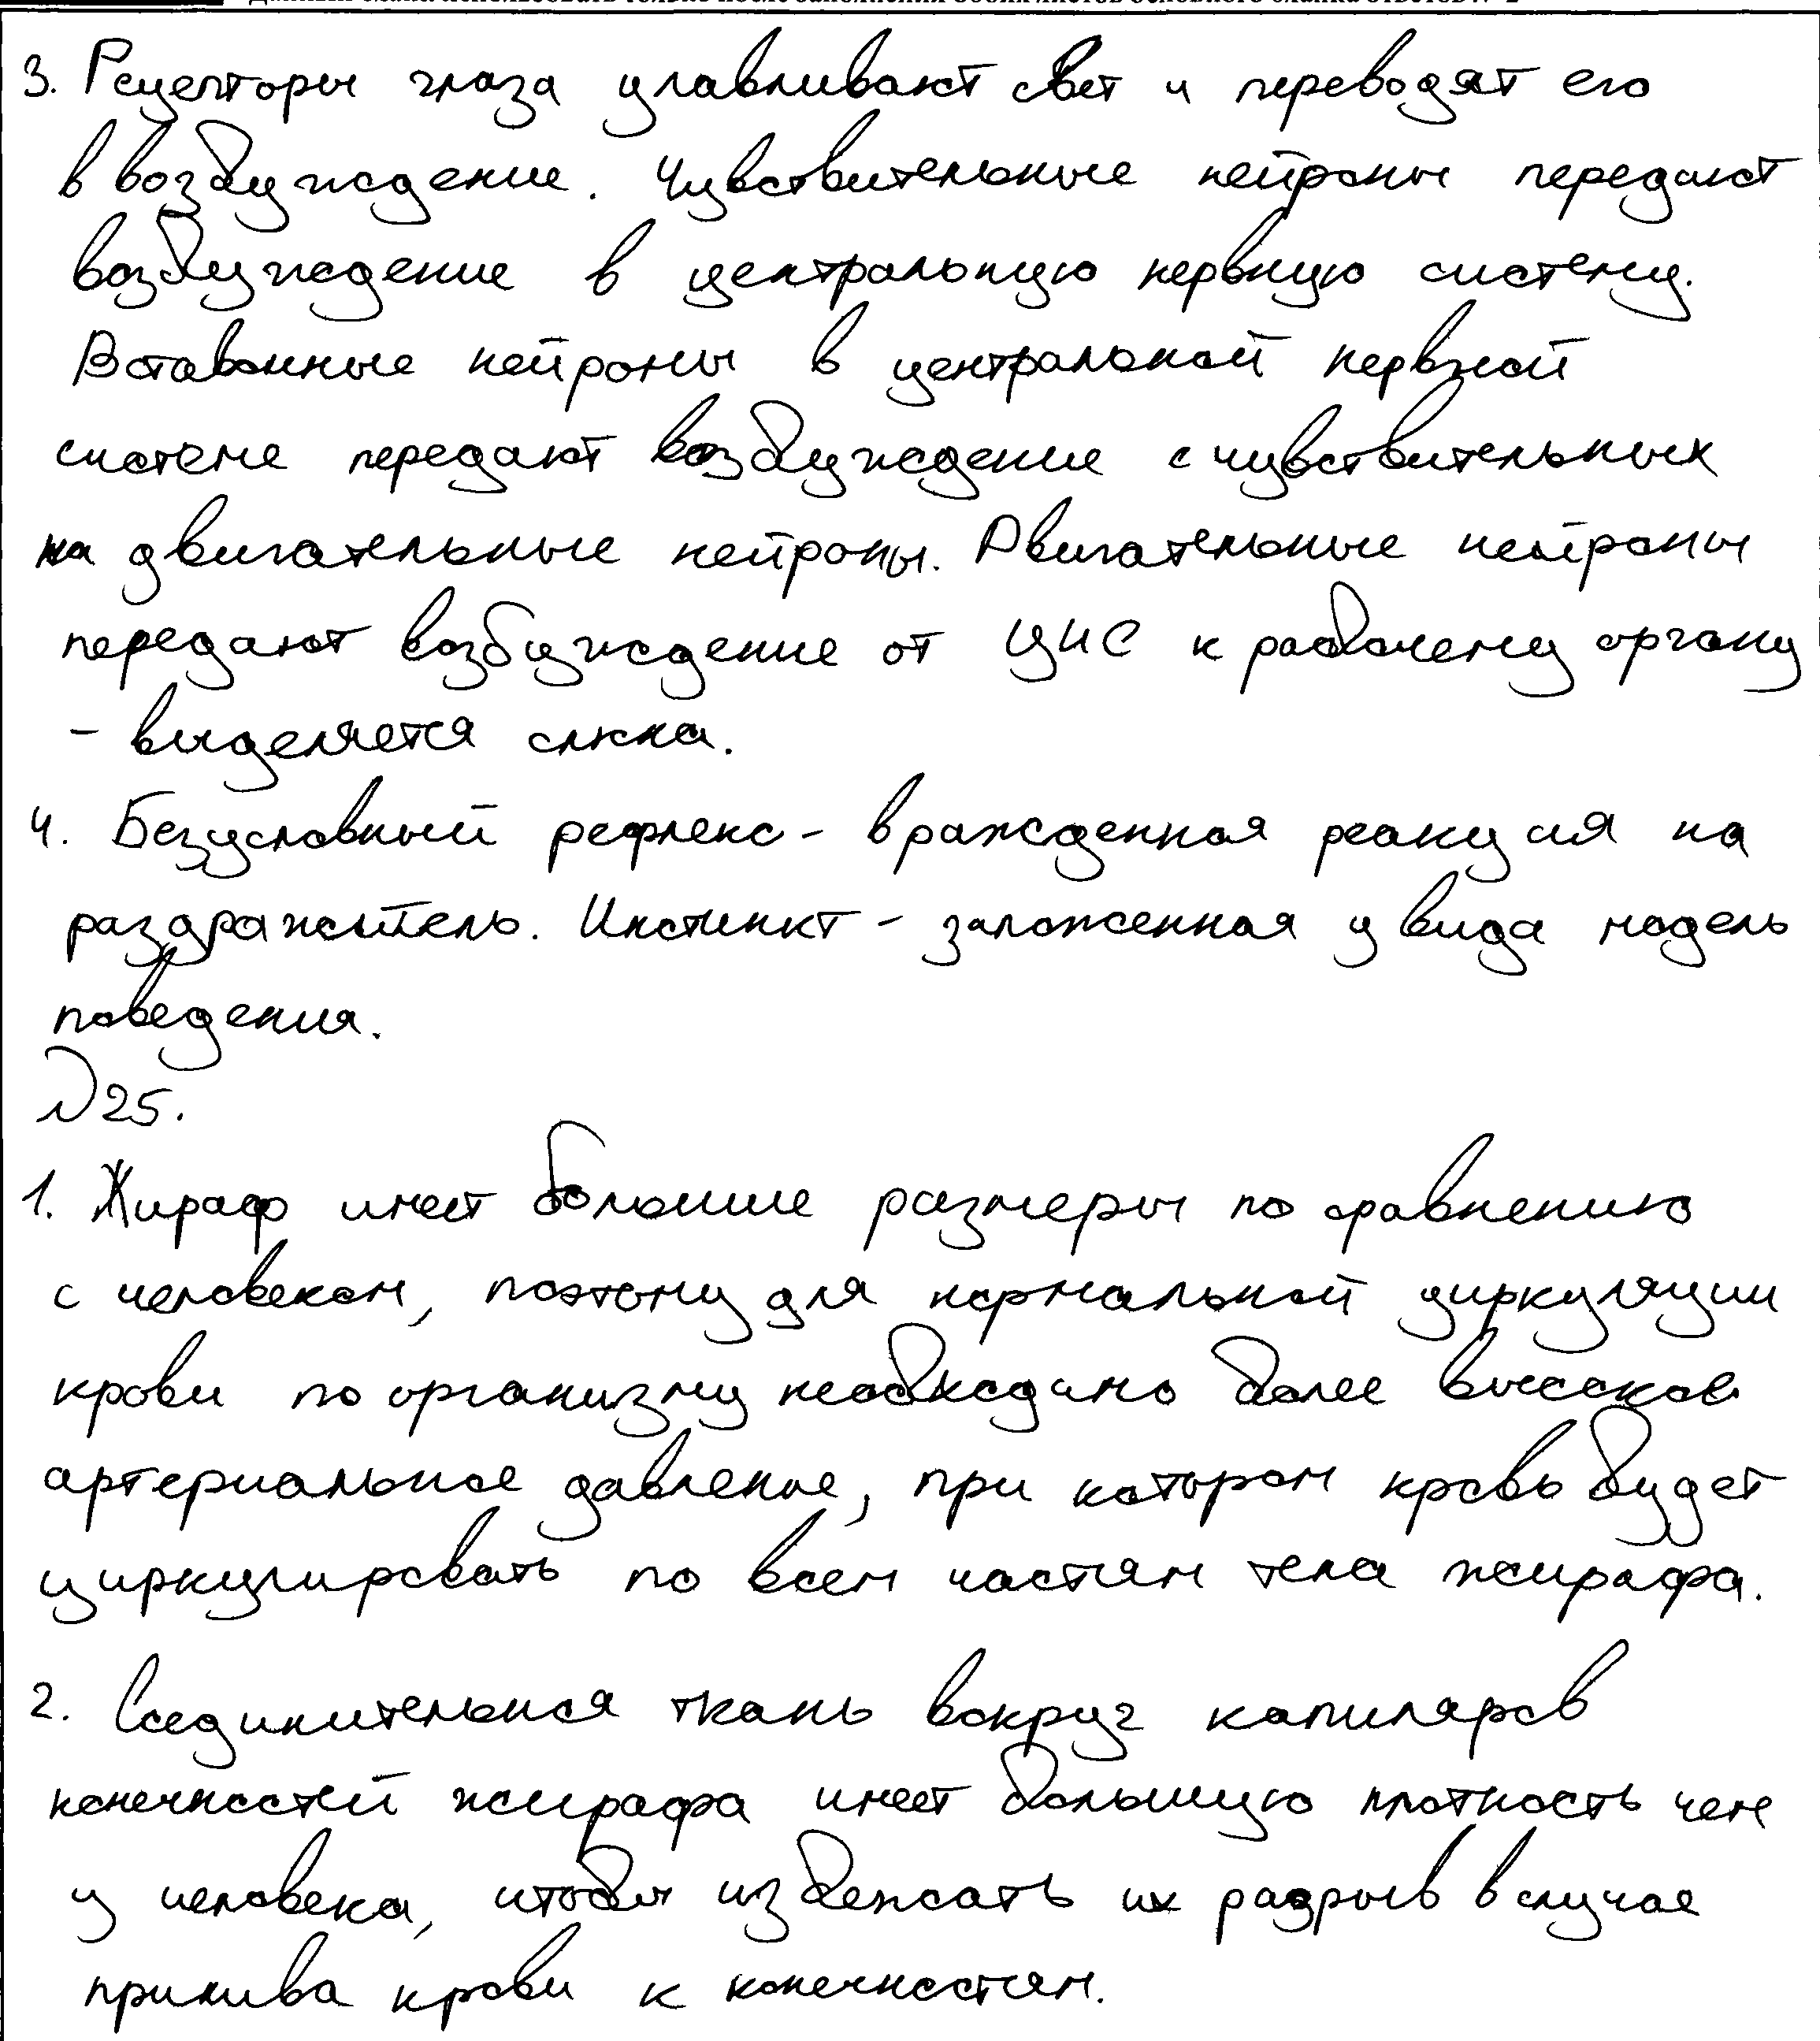 3. Рецепторы глаза улавливают свет и переводят его
в возбуждение. Чувствительные нейроны передают
возбуждение в центральную нервную систему.
Вставочные нейроны в центральной нервной
системе передают возбуждение с чувствительных
на двигательные нейроны. Двигательные нейроны
передают возбуждение от ЦНС к рабочему органу
- выделяется слюна.
4. Безусловный рефлекс - врожденная реакция на
раздражитель. Инстинкт - заложенная у вида модель
поведения.
№25.
1. Жираф имеет большие размеры по сравнению
с человеком, поэтому для нормальной циркуляции
крови по организму необходимо более высокое
артериальное давление, при котором кровь будет
циркулировать по всем частям тела жирафа.
2. Соединительная ткань вокруг капиляров
конечностей жирафа имеет большую плотность чем
у человека, чтобы избежать их разрыв в случае
прилива крови к конечностям.